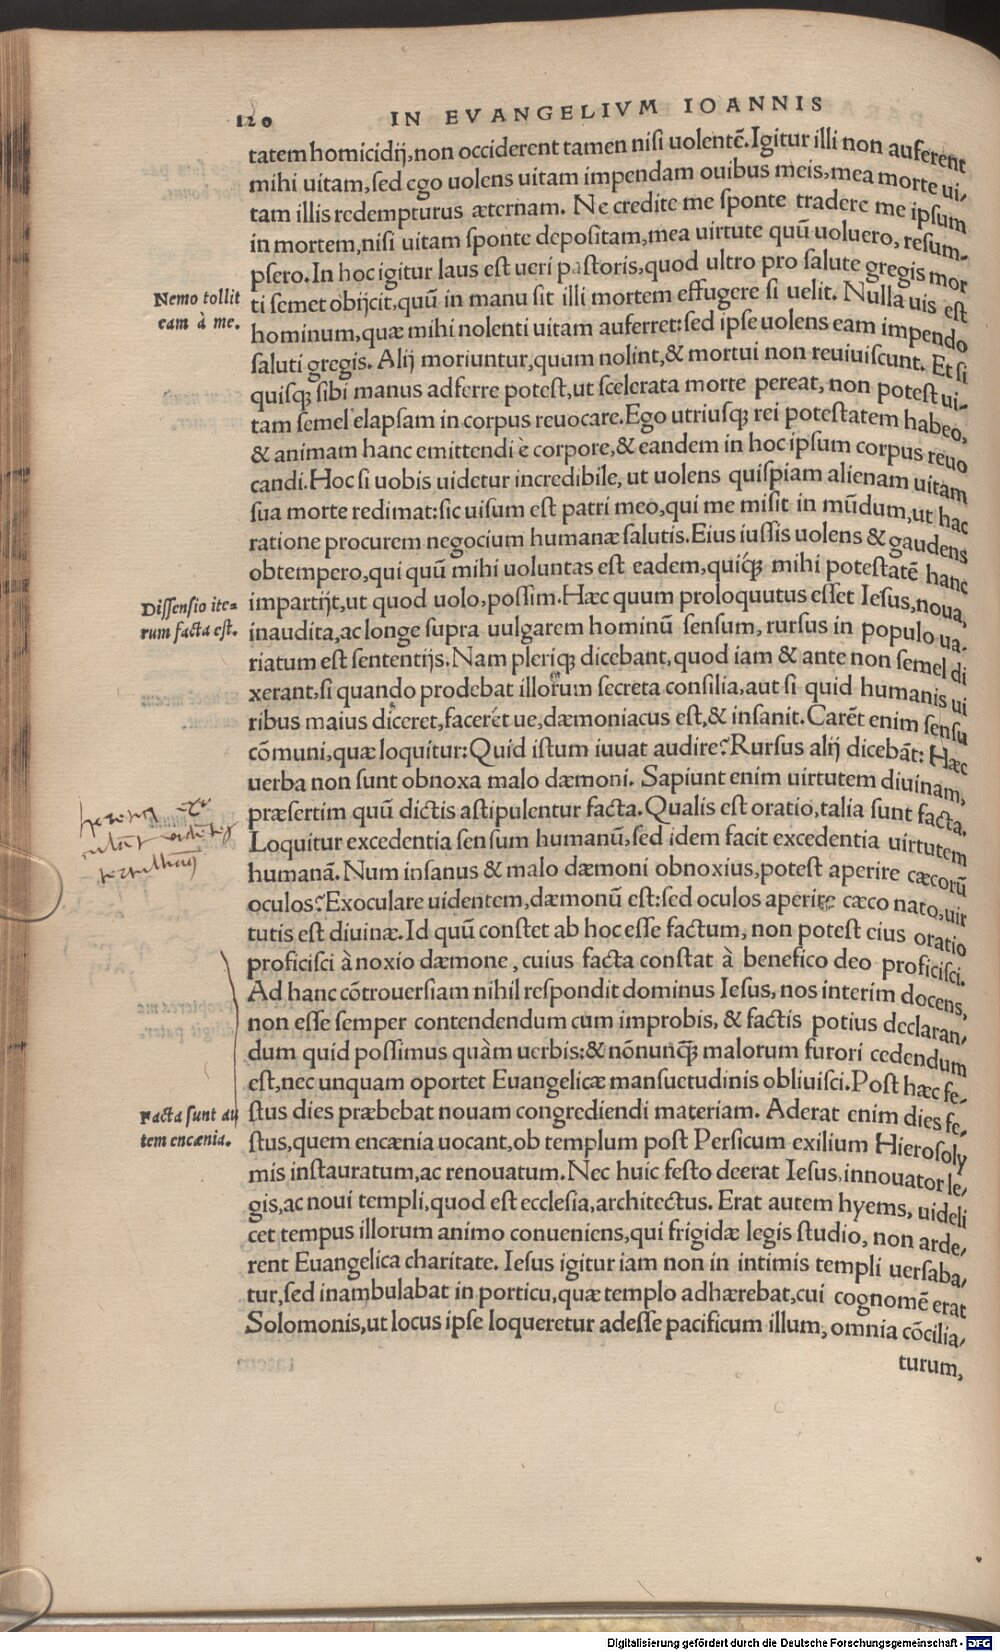 120 IN EVANGELIVM IOANNIS
tatem homicidij, non occiderent tamen nisi uolentẽ. Igitur illi non auferent
mihi uitam, sed ego uolens uitam impendam ouibus meis, mea morte ui-
tam illis redempturus æternam. Ne credite me sponte tradere me ipsum
in mortem, nisi uitam sponte depositam, mea uirtute quũ uoluero, resum-
psero. In hoc igitur laus est ueri pastoris, quod ultro pro salute gregis mor
Nemo tollit
eam à me.
ti semet obijcit, quũ in manu sit illi mortem effugere si uelit. Nulla uis est
hominum, quæ mihi nolenti uitam auferret: sed ipse uolens eam impendo
saluti gregis. Alij moriuntur, quum nolint, & mortui non reuiuiscunt. Et si
quisq; sibi manus adferre potest, ut scelerata morte pereat, non potest ui-
tam semel elapsam in corpus reuocare. Ego utriusq; rei potestatem habeo,
& animam hanc emittendi è corpore, & eandem in hoc ipsum corpus reuo
candi. Hoc si uobis uidetur incredibile, ut uolens quispiam alienam uitam
sua morte redimat: sic uisum est patri meo, qui me misit in mũdum, ut hac
ratione procurem negocium humanæ salutis. Eius iussis uolens & gaudens
obtempero, qui quũ mihi uoluntas est eadem, quicq; mihi potestatẽ hanc
Dissensio ite=
rum facta est.
impartijt, ut quod uolo, possim. Hæc quum proloquutus esset Iesus, noua,
inaudita, ac longe supra uulgarem hominũ sensum, rursus in populo ua-
riatum est sententijs. Nam pleriq; dicebant, quod iam & ante non semel di
xerant, si quando prodebat illorum secreta consilia, aut si quid humanis ui
ribus maius diceret, faceret ue, dæmoniacus est, & insanit. Carẽt enim sensu
cõmuni, quæ loquitur: Quid istum iuuat audire? Rursus alij dicebãt: Hæc
uerba non sunt obnoxa malo dæmoni. Sapiunt enim uirtutem diuinam,
præsertim quũ dictis astipulentur facta. Qualis est oratio, talia sunt facta.
Loquitur excedentia sensum humanũ, sed idem facit excedentia uirtutem
humanã. Num insanus & malo dæmoni obnoxius, potest aperire cæcorũ
oculos? Exoculare uidentem, dæmonũ est: sed oculos aperire cæco nato, uir
tutis est diuinæ. Id quũ constet ab hoc esse factum, non potest eius oratio
proficisci à noxio dæmone, cuius facta constat à benefico deo proficisci.
Ad hanc cõtrouersiam nihil respondit dominus Iesus, nos interim docens,
non esse semper contendendum cum improbis, & factis potius declaran-
dum quid possimus quàm uerbis: & nõnunq̃; malorum furori cedendum
est, nec unquam oportet Euangelicæ mansuetudinis obliuisci. Post hæc fe-
Facta sunt au
tem encænia.
stus dies præbebat nouam congrediendi materiam. Aderat enim dies fe-
stus, quem encænia uocant, ob templum post Persicum exilium Hierosoly
mis instauratum, ac renouatum. Nec huic festo deerat Iesus, innouator le-
gis, ac noui templi, quod est ecclesia, architectus. Erat autem hyems, uideli
cet tempus illorum animo conueniens, qui frigidæ legis studio, non arde-
rent Euangelica charitate. Iesus igitur iam non in intimis templi uersaba-
tur, sed inambulabat in porticu, quæ templo adhærebat, cui cognomẽ erat
Solomonis, ut locus ipse loqueretur adesse pacificum illum, omnia cõcilia-
turum,
Digitalisierung gefördert durch die Deutsche Forschungsgemeinschaft - DFG